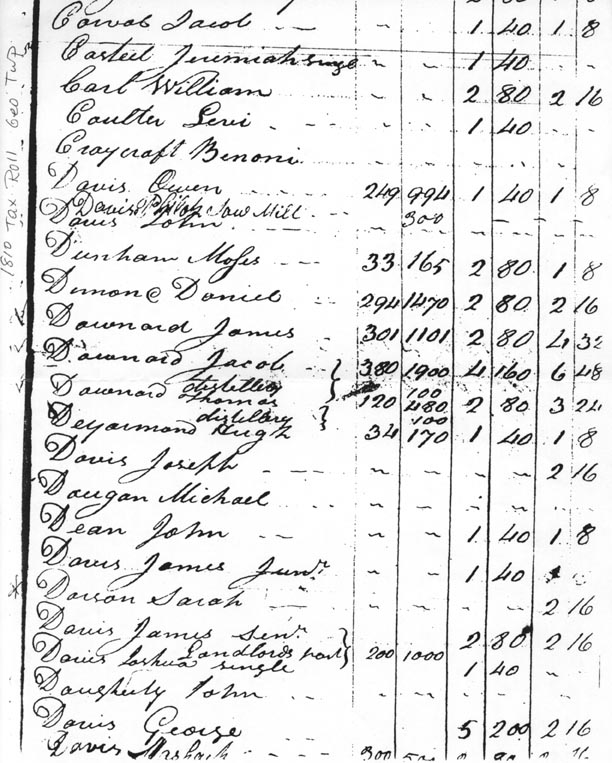 Jacob 1 40 1 8
Casteel Jeremiah single 1 40
Carl William 2 80 2 16
Coulter Levi 1 40
Craycraft Benoni
Davis Owen 249 994 1 40 1 8
Davis Saw Mill 300
Davis John
Dunham Moses 33 165 2 80 1 8
Dimond Daniel 294 1470 2 80 2 16
Downard James 301 1101 2 80 4 32
Downard Jacob 380 1900 4 160 6 48
distillery 100
Downard Thomas 120 480 2 80 3 24
distillery 100
Deyarmond Hugh 34 170 1 40 1 8
Davis Joseph 2 16
Dougan Michael
Dean John 1 40 1 8
Davis James Junr 1 40
Dorson Sarah 2 16
Davis James Senr 2 80 2 16
Landlords part 200 1000
Davis Joshua single 1 40
Daugherty John
Davis George 5 200 2 16
Davis 300
1810 Tax Roll Geo Twp